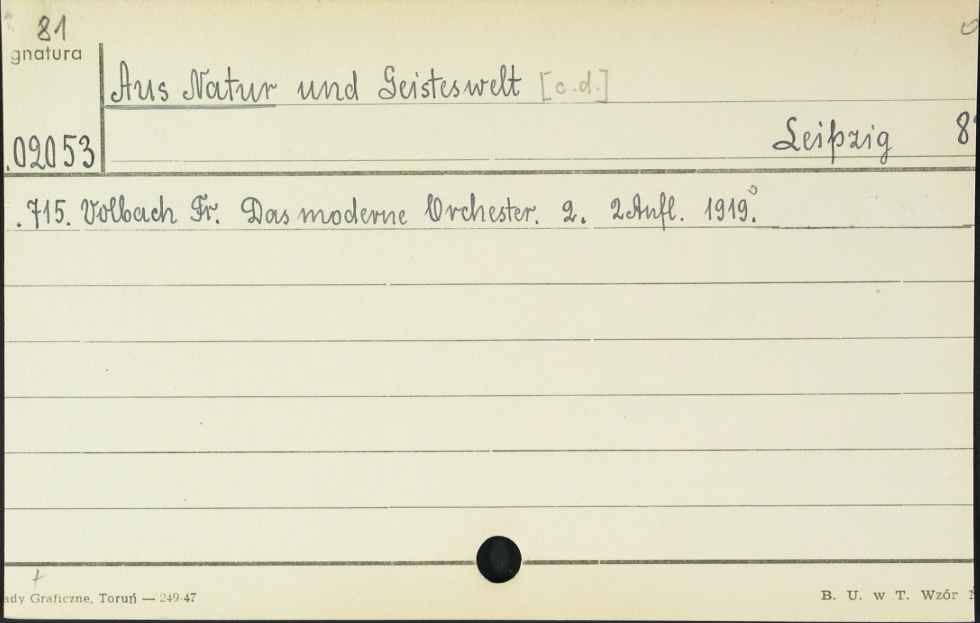 81
gnatura
Aus Natur und Geisteswelt [c.d.]
.02053
Leipzig 8°
.715. Volbach Fr. Das moderne Orchester. 2. 2 Aufl. 1919.
ady Graficzne, Toruń — 249-47
B. U. w T. Wzór